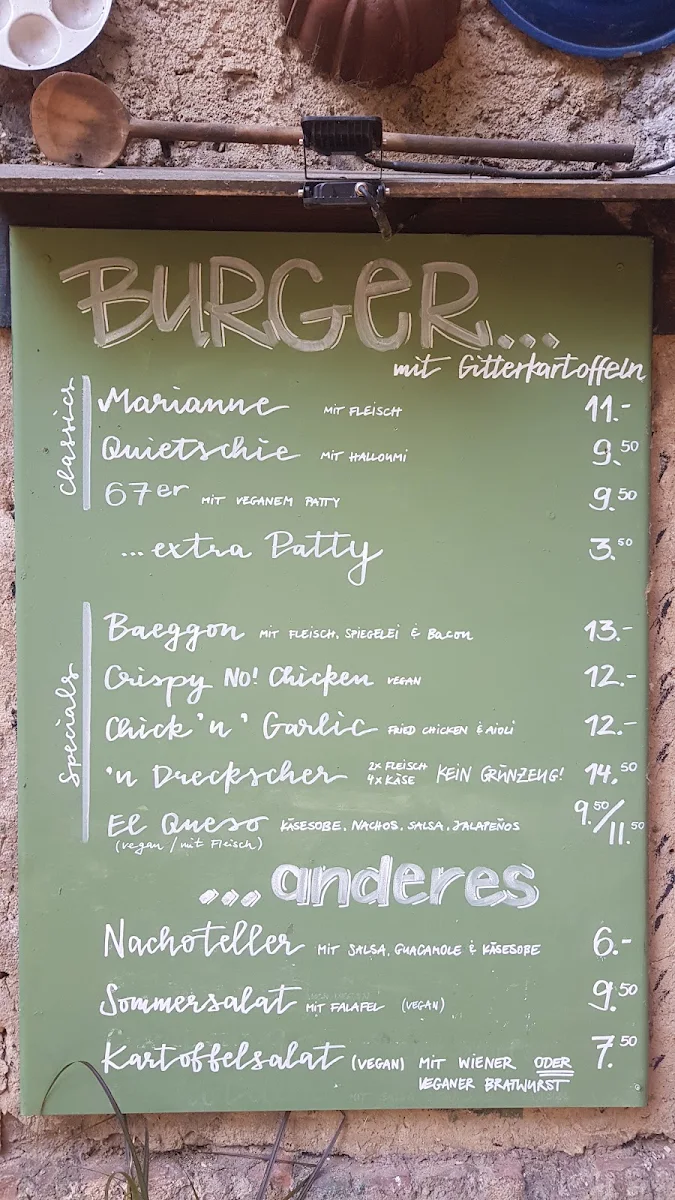 BURGER...
mit Gitterkartoffeln
classics
Marianne MIT FLEISCH 11.-
Quietschie MIT HALLOUMI 9.50
67er MIT VEGANEM PATTY 9.50
...extra Patty 3.50
Specials
Baeggon MIT FLEISCH, SPIEGELEI & Bacon 13.-
Crispy NO! Chicken VEGAN 12.-
Chick'n' Garlic FRIED CHICKEN & AIOLI 12.-
'n Dreckscher 2x FLEISCH 4x KÄSE KEIN GRÜNZEUG! 14.50
El Queso KÄSESOßE, NACHOS, SALSA, JALAPEÑOS 9.50/11.50
(vegan / mit Fleisch)
...anderes
Nachoteller MIT SALSA, GUACAMOLE & KÄSESOßE 6.-
Sommersalat MIT FALAFEL (VEGAN) 9.50
Kartoffelsalat (VEGAN) MIT WIENER ODER 7.50
VEGANER BRATWURST